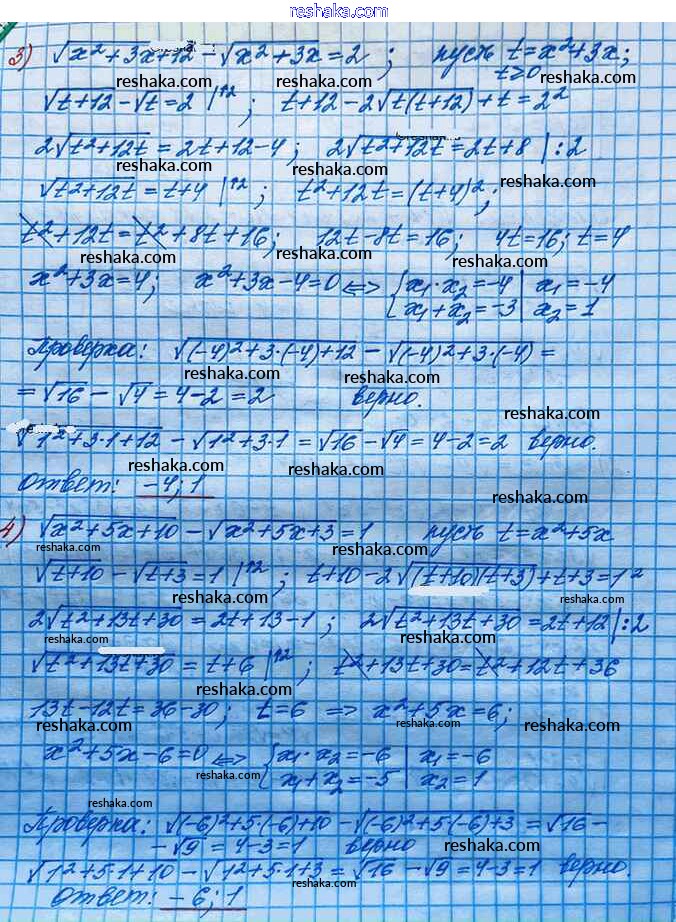 reshaka.com
3) √(x²+3x+12) - √(x²+3x) = 2 ; пусть t=x²+3x;
t≥0
reshaka.com reshaka.com
√(t+12) - √t = 2 |↑2 ; t+12-2√(t(t+12)) + t = 2²
2√(t²+12t) = 2t+12-4 ; 2√(t²+12t) = 2t+8 |:2
reshaka.com reshaka.com
√(t²+12t) = t+4 |↑2 ; t²+12t = (t+4)²;
t²+12t = t²+8t+16; 12t-8t=16; 4t=16; t=4
reshaka.com reshaka.com reshaka.com
x²+3x=4; x²+3x-4=0 <=> {x₁·x₂=-4 | x₁=-4
{x₁+x₂=-3 | x₂=1
reshaka.com reshaka.com
Проверка: √((-4)²+3·(-4)+12) - √((-4)²+3·(-4)) =
reshaka.com reshaka.com
= √16 - √4 = 4-2 = 2 верно.
reshaka.com
√(1²+3·1+12) - √(1²+3·1) = √16 - √4 = 4-2=2 верно.
reshaka.com reshaka.com
Ответ: -4; 1
reshaka.com
4) √(x²+5x+10) - √(x²+5x+3) = 1 пусть t=x²+5x
reshaka.com reshaka.com
√(t+10) - √(t+3) = 1 |↑2 ; t+10-2√((t+10)(t+3)) + t+3 = 1²
reshaka.com reshaka.com
2√(t²+13t+30) = 2t+13-1 ; 2√(t²+13t+30) = 2t+12 |:2
reshaka.com reshaka.com
√(t²+13t+30) = t+6 |↑2 ; t²+13t+30 = t²+12t+36
reshaka.com reshaka.com
13t-12t=36-30; t=6 => x²+5x=6;
reshaka.com reshaka.com reshaka.com
x²+5x-6=0 <=> {x₁·x₂=-6 | x₁=-6
{x₁+x₂=-5 | x₂=1
reshaka.com reshaka.com
reshaka.com
Проверка: √((-6)²+5·(-6)+10) - √((-6)²+5·(-6)+3) = √16 -
- √9 = 4-3=1 верно
reshaka.com reshaka.com
√(1²+5·1+10) - √(1²+5·1+3) = √16 - √9 = 4-3=1 верно.
reshaka.com
Ответ: -6; 1